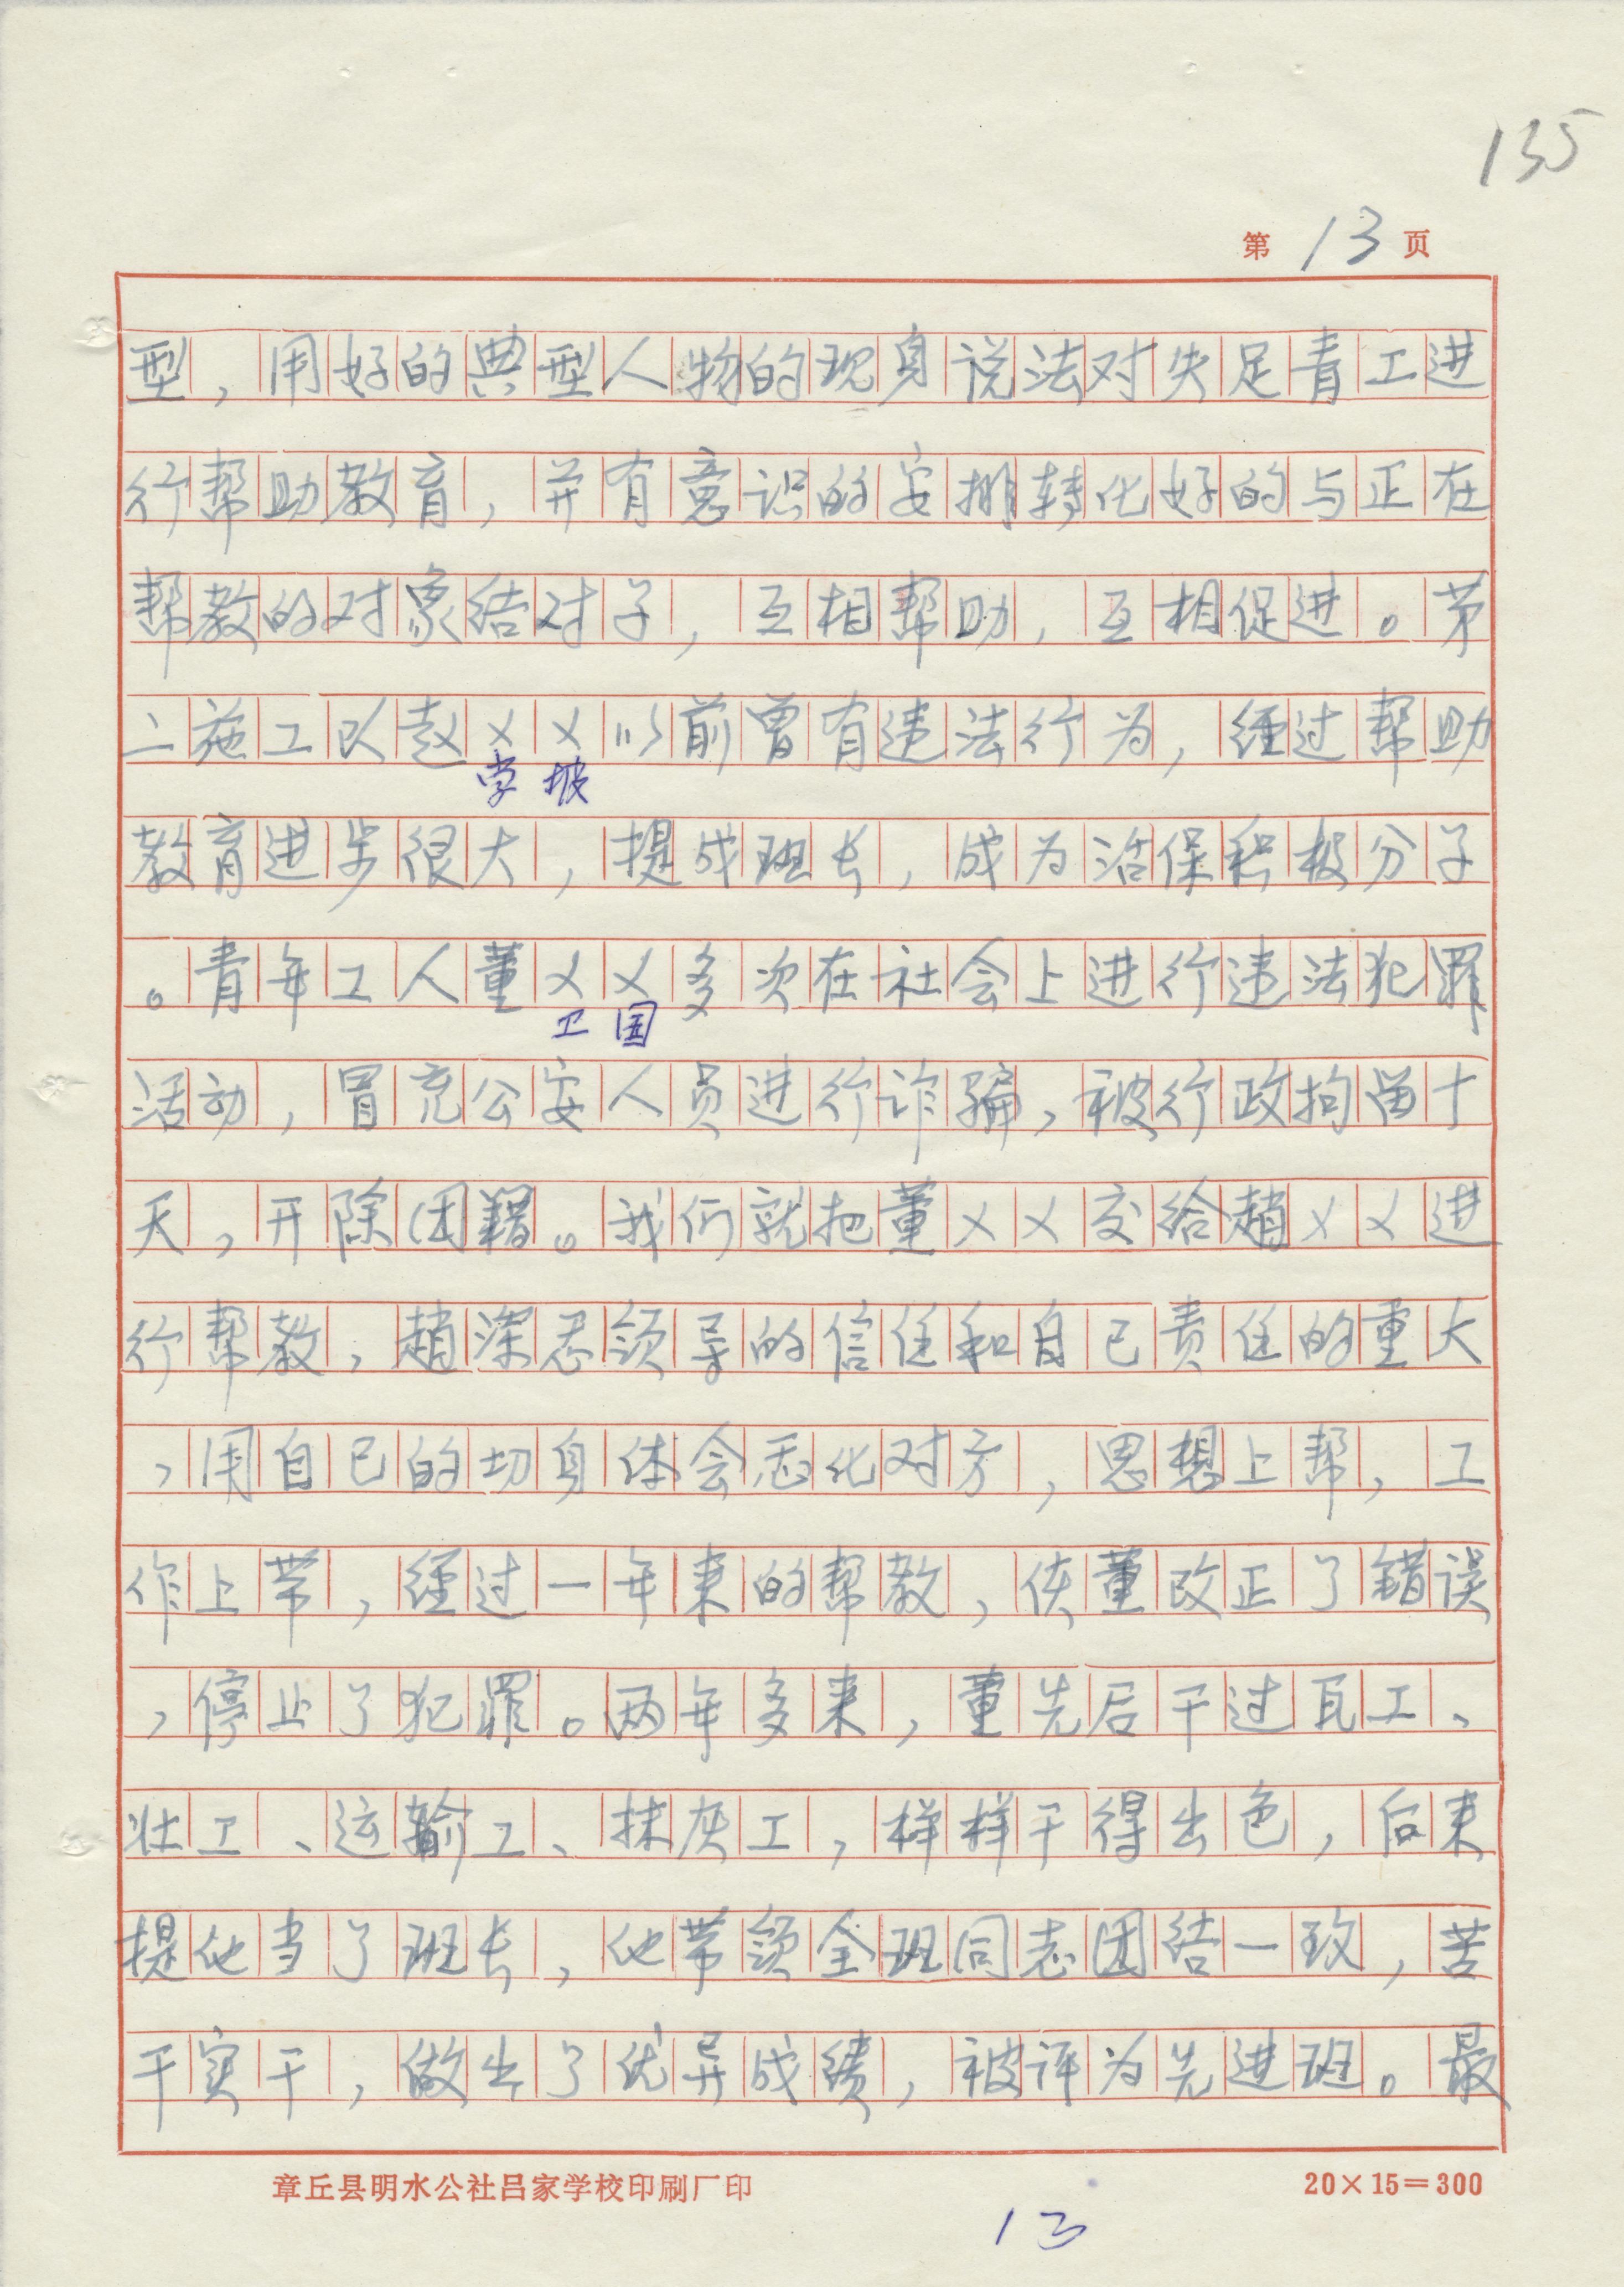 135
第 13 页
型，用好的典型人物的现身说法对失足青工进
行帮助教育，并有意识的安排转化好的与正在
帮教的对象结对子，互相帮助，互相促进。第
二施工队赵××以前曾有违法行为，经过帮助
学坡
教育进步很大，提成班长，成为治保积极分子
。青年工人董××多次在社会上进行违法犯罪
卫国
活动，冒充公安人员进行诈骗，被行政拘留十
天，开除团籍。我们就把董××交给趙××进
行帮教，趙深感领导的信任和自己责任的重大
，用自己的切身体会感化对方，思想上帮，工
作上带，经过一年来的帮教，使董改正了错误
，停止了犯罪。两年多来，董先后干过瓦工、
壮工、运输工、抹灰工，样样干得出色，后来
提他当了班长，他带领全班同志团结一致，苦
干实干，做出了优异成绩，被评为先进班。最
章丘县明水公社吕家学校印刷厂印 20×15=300
13